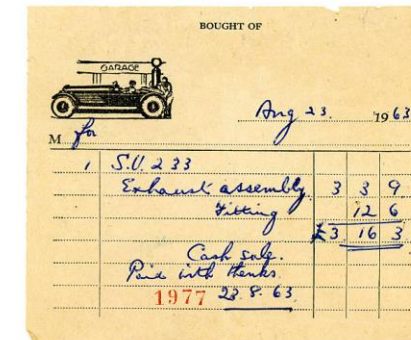 BOUGHT OF
GARAGE
Aug 23. 1963
M for
1 S.U. 233
Exhaust assembly 3 3 9
Fitting 12 6
£3 16 3
Cash sale.
Paid with thanks.
1977 23.8.63